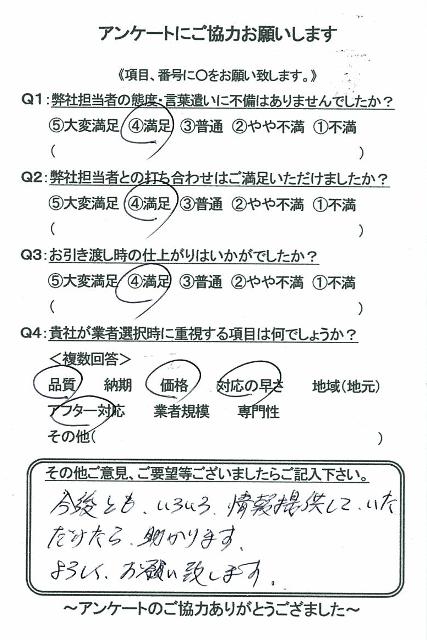 アンケートにご協力お願いします
《項目、番号に〇をお願い致します。》
Q1:弊社担当者の態度・言葉遣いに不備はありませんでしたか?
⑤大変満足 ④満足 ③普通 ②やや不満 ①不満
( )
Q2:弊社担当者との打ち合わせはご満足いただけましたか?
⑤大変満足 ④満足 ③普通 ②やや不満 ①不満
( )
Q3:お引き渡し時の仕上がりはいかがでしたか?
⑤大変満足 ④満足 ③普通 ②やや不満 ①不満
( )
Q4:貴社が業者選択時に重視する項目は何でしょうか?
<複数回答>
品質 納期 価格 対応の早さ 地域(地元)
アフター対応 業者規模 専門性
その他( )
その他ご意見、ご要望等ございましたらご記入下さい。
今後とも、いろいろ、情報提供して、いた
だけたら、助かります。
よろしく、お願い致します。
～アンケートのご協力ありがとうござました～